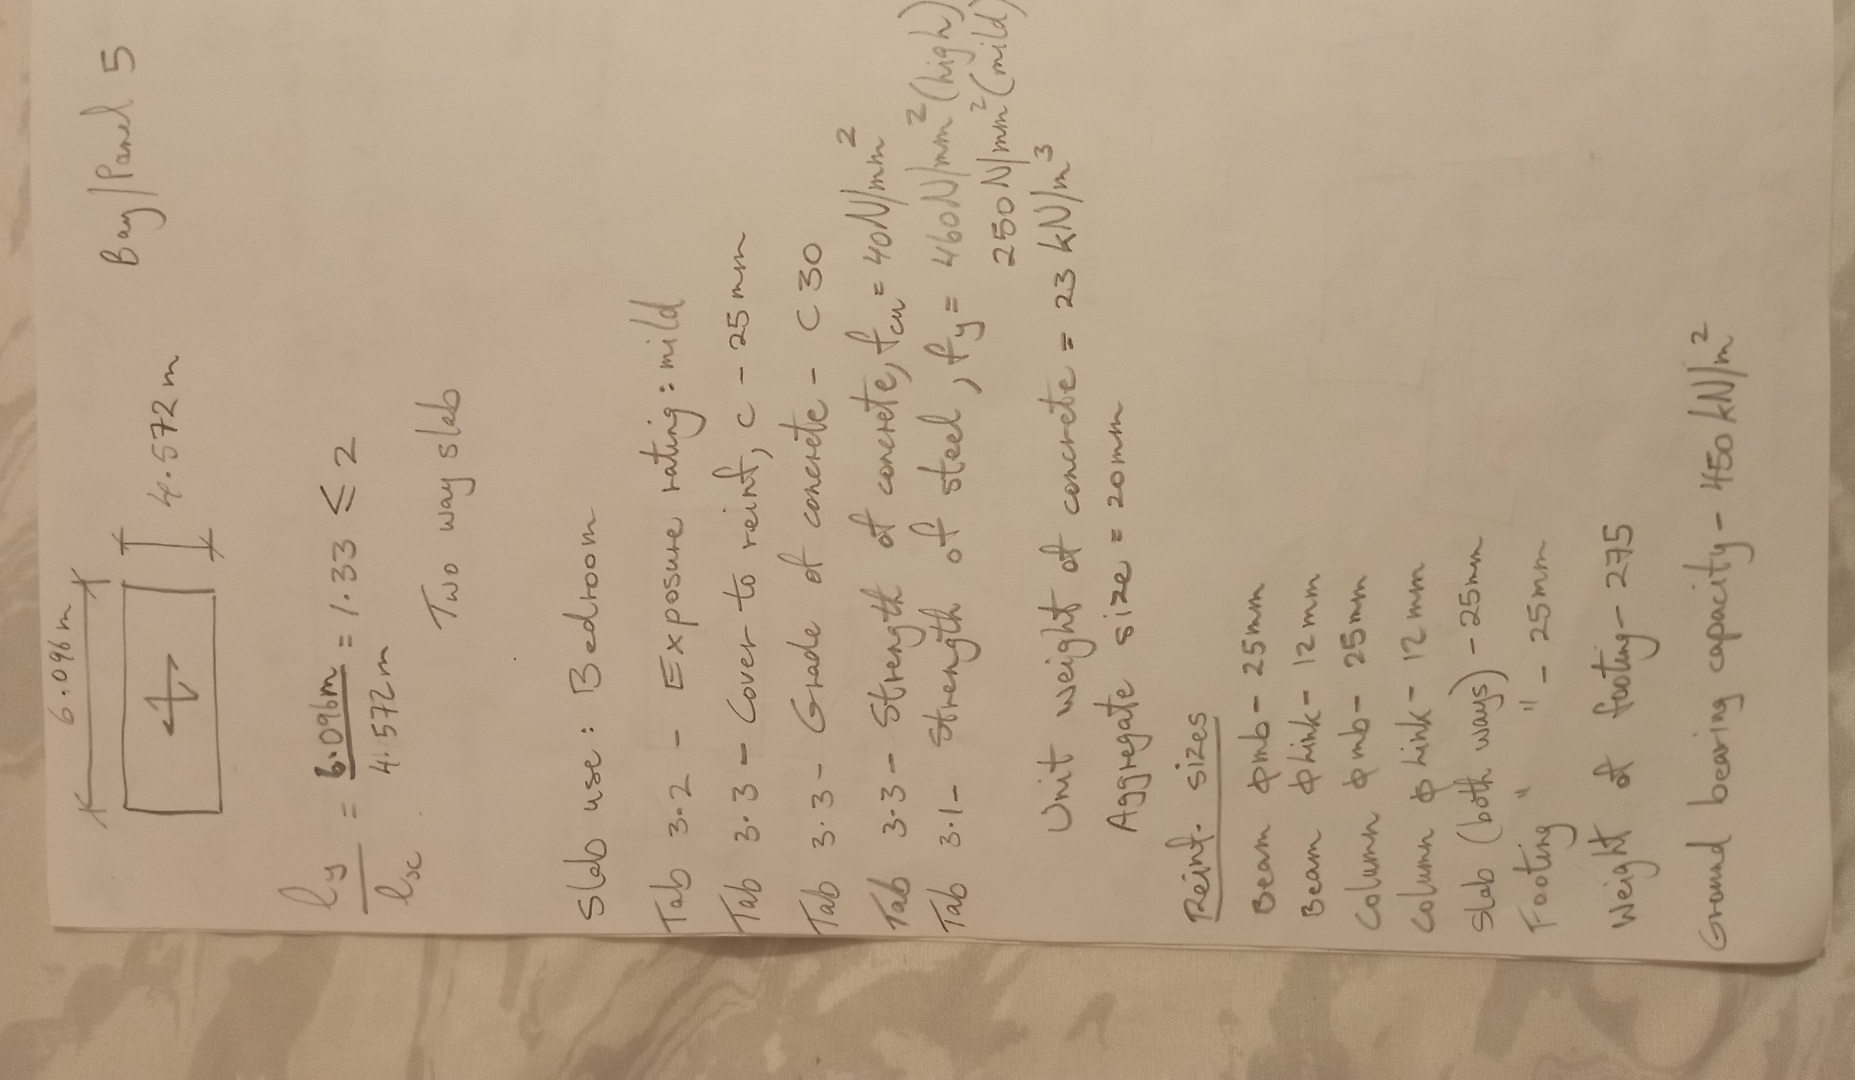 6.096m
Bay/Panel 5
4.572m
ly/lx = 6.096m/4.572m = 1.33 ≤ 2
Two way slab
Slab use: Bedroom
Tab 3.2 - Exposure rating: mild
Tab 3.3 - Cover to reinf, c - 25mm
Tab 3.3 - Grade of concrete - C30
Tab 3.3 - Strength of concrete, fcu = 40N/mm²
Tab 3.1 - Strength of steel, fy = 460N/mm² (high)
250N/mm² (mild)
Unit weight of concrete = 23 kN/m³
Aggregate size = 20mm
Reinf. sizes
Beam ϕmb - 25mm
Beam ϕlink - 12mm
Column ϕmb - 25mm
Column ϕlink - 12mm
Slab (both ways) - 25mm
Footing " " - 25mm
Weight of footing - 275
Ground bearing capacity - 450kN/m²